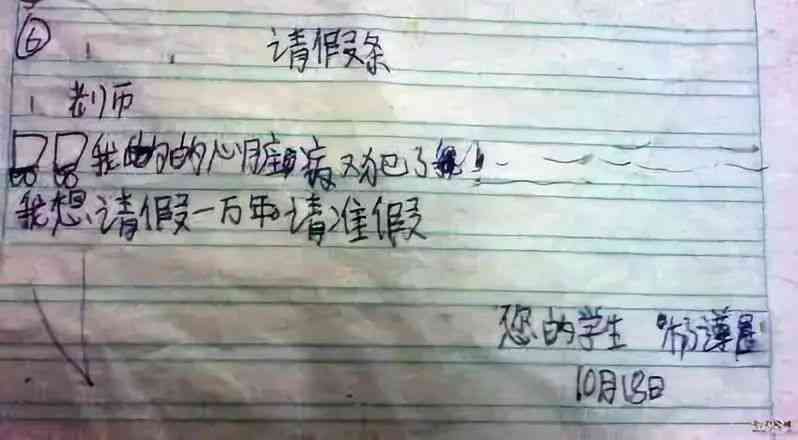 ⑥ 请假条
老师
我的心脏病又犯了
我想请假一万年请准假
您的学生 杨
10月18日